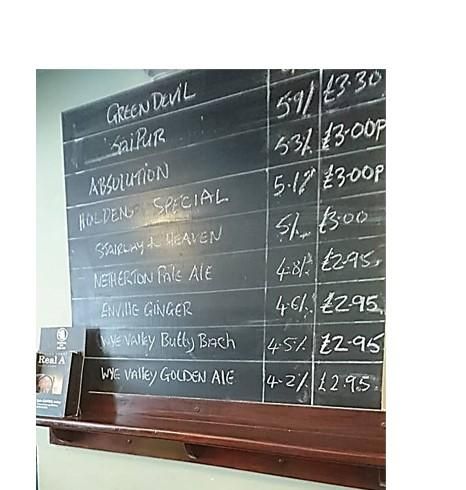 GREEN DEVIL 5.9% £3.30
JAIPUR 5.3% £3.00P
ABSOLUTION 5.1% £3.00P
HOLDENS SPECIAL 5% £3.00
STAIRWAY to HEAVEN 4.8% £2.95
NETHERTON Pale ALE 4.8% £2.95
ENVILLE GINGER 4.6% £2.95
WYE VAlley Butty Bach 4.5% £2.95
WYE VAlley GOLDEN ALE 4.2% £2.95
Real A